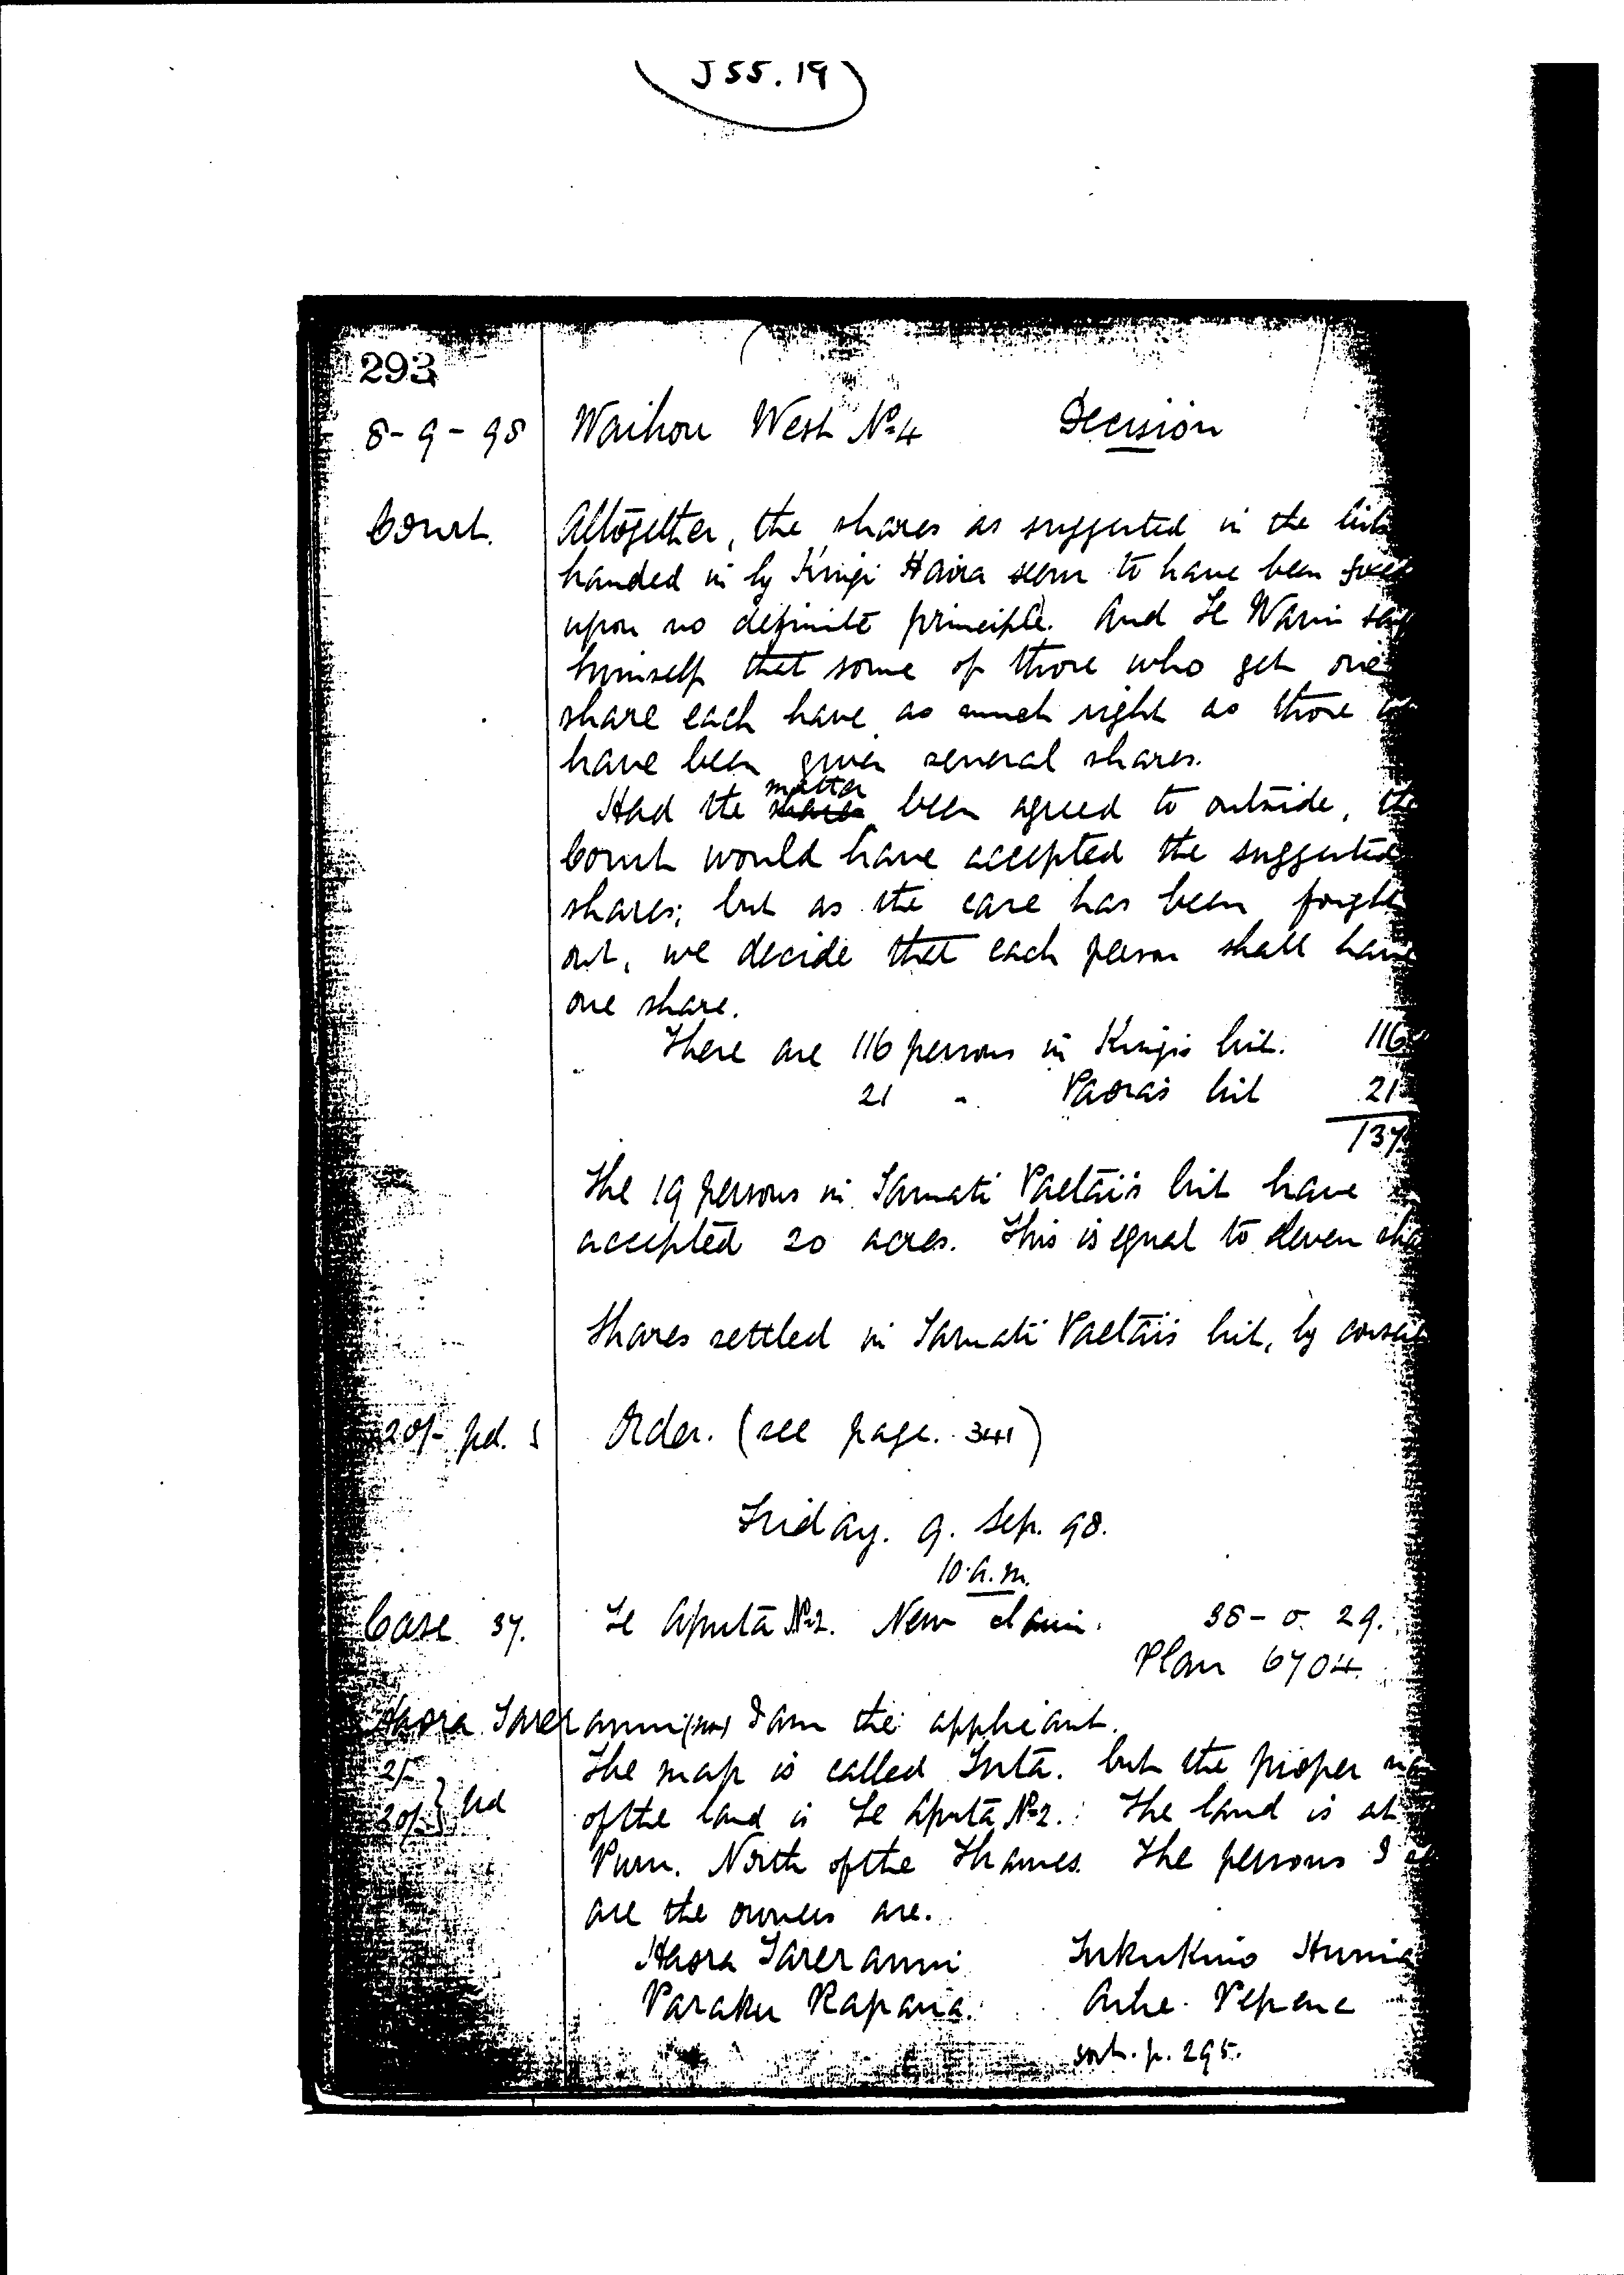 J55.19
293
8-9-98 Waihou West No 4 Decision
Court. Altogether, the shares as suggested in the
handed in by Kingi Haira seem to have been
upon no definite principle. And Te Warin
himself that some of those who get one
share each have as much right as those
have been given several shares.
matter
Had the been agreed to outside, the
Court would have accepted the suggested
shares; but as the case has been fought
out, we decide that each person shall have
one share.
There are 116 persons in Kingi's list. 116
21 " Paora's list 21
137
The 19 persons in Tamati Paetai's list have
accepted 20 acres. This is equal to eleven
Shares settled in Tamati Paetai's list, by
20/- pd. Order. (see page. 341)
Friday. 9. Sep. 98.
10.a.m.
Case 37. Te Aputa No 2. New claim. 38-0.29.
Plan 6704
Haora Tareranui I am the applicant.
2/- The map is called Tuta. but the proper
20/- } pd of the land is Te Aputa No 2. The land is at
Puru. North of the Thames. The persons I
are the owners are.
Haora Tareranui Tukukino
Paraku Rapana. Pepene
p. 295.